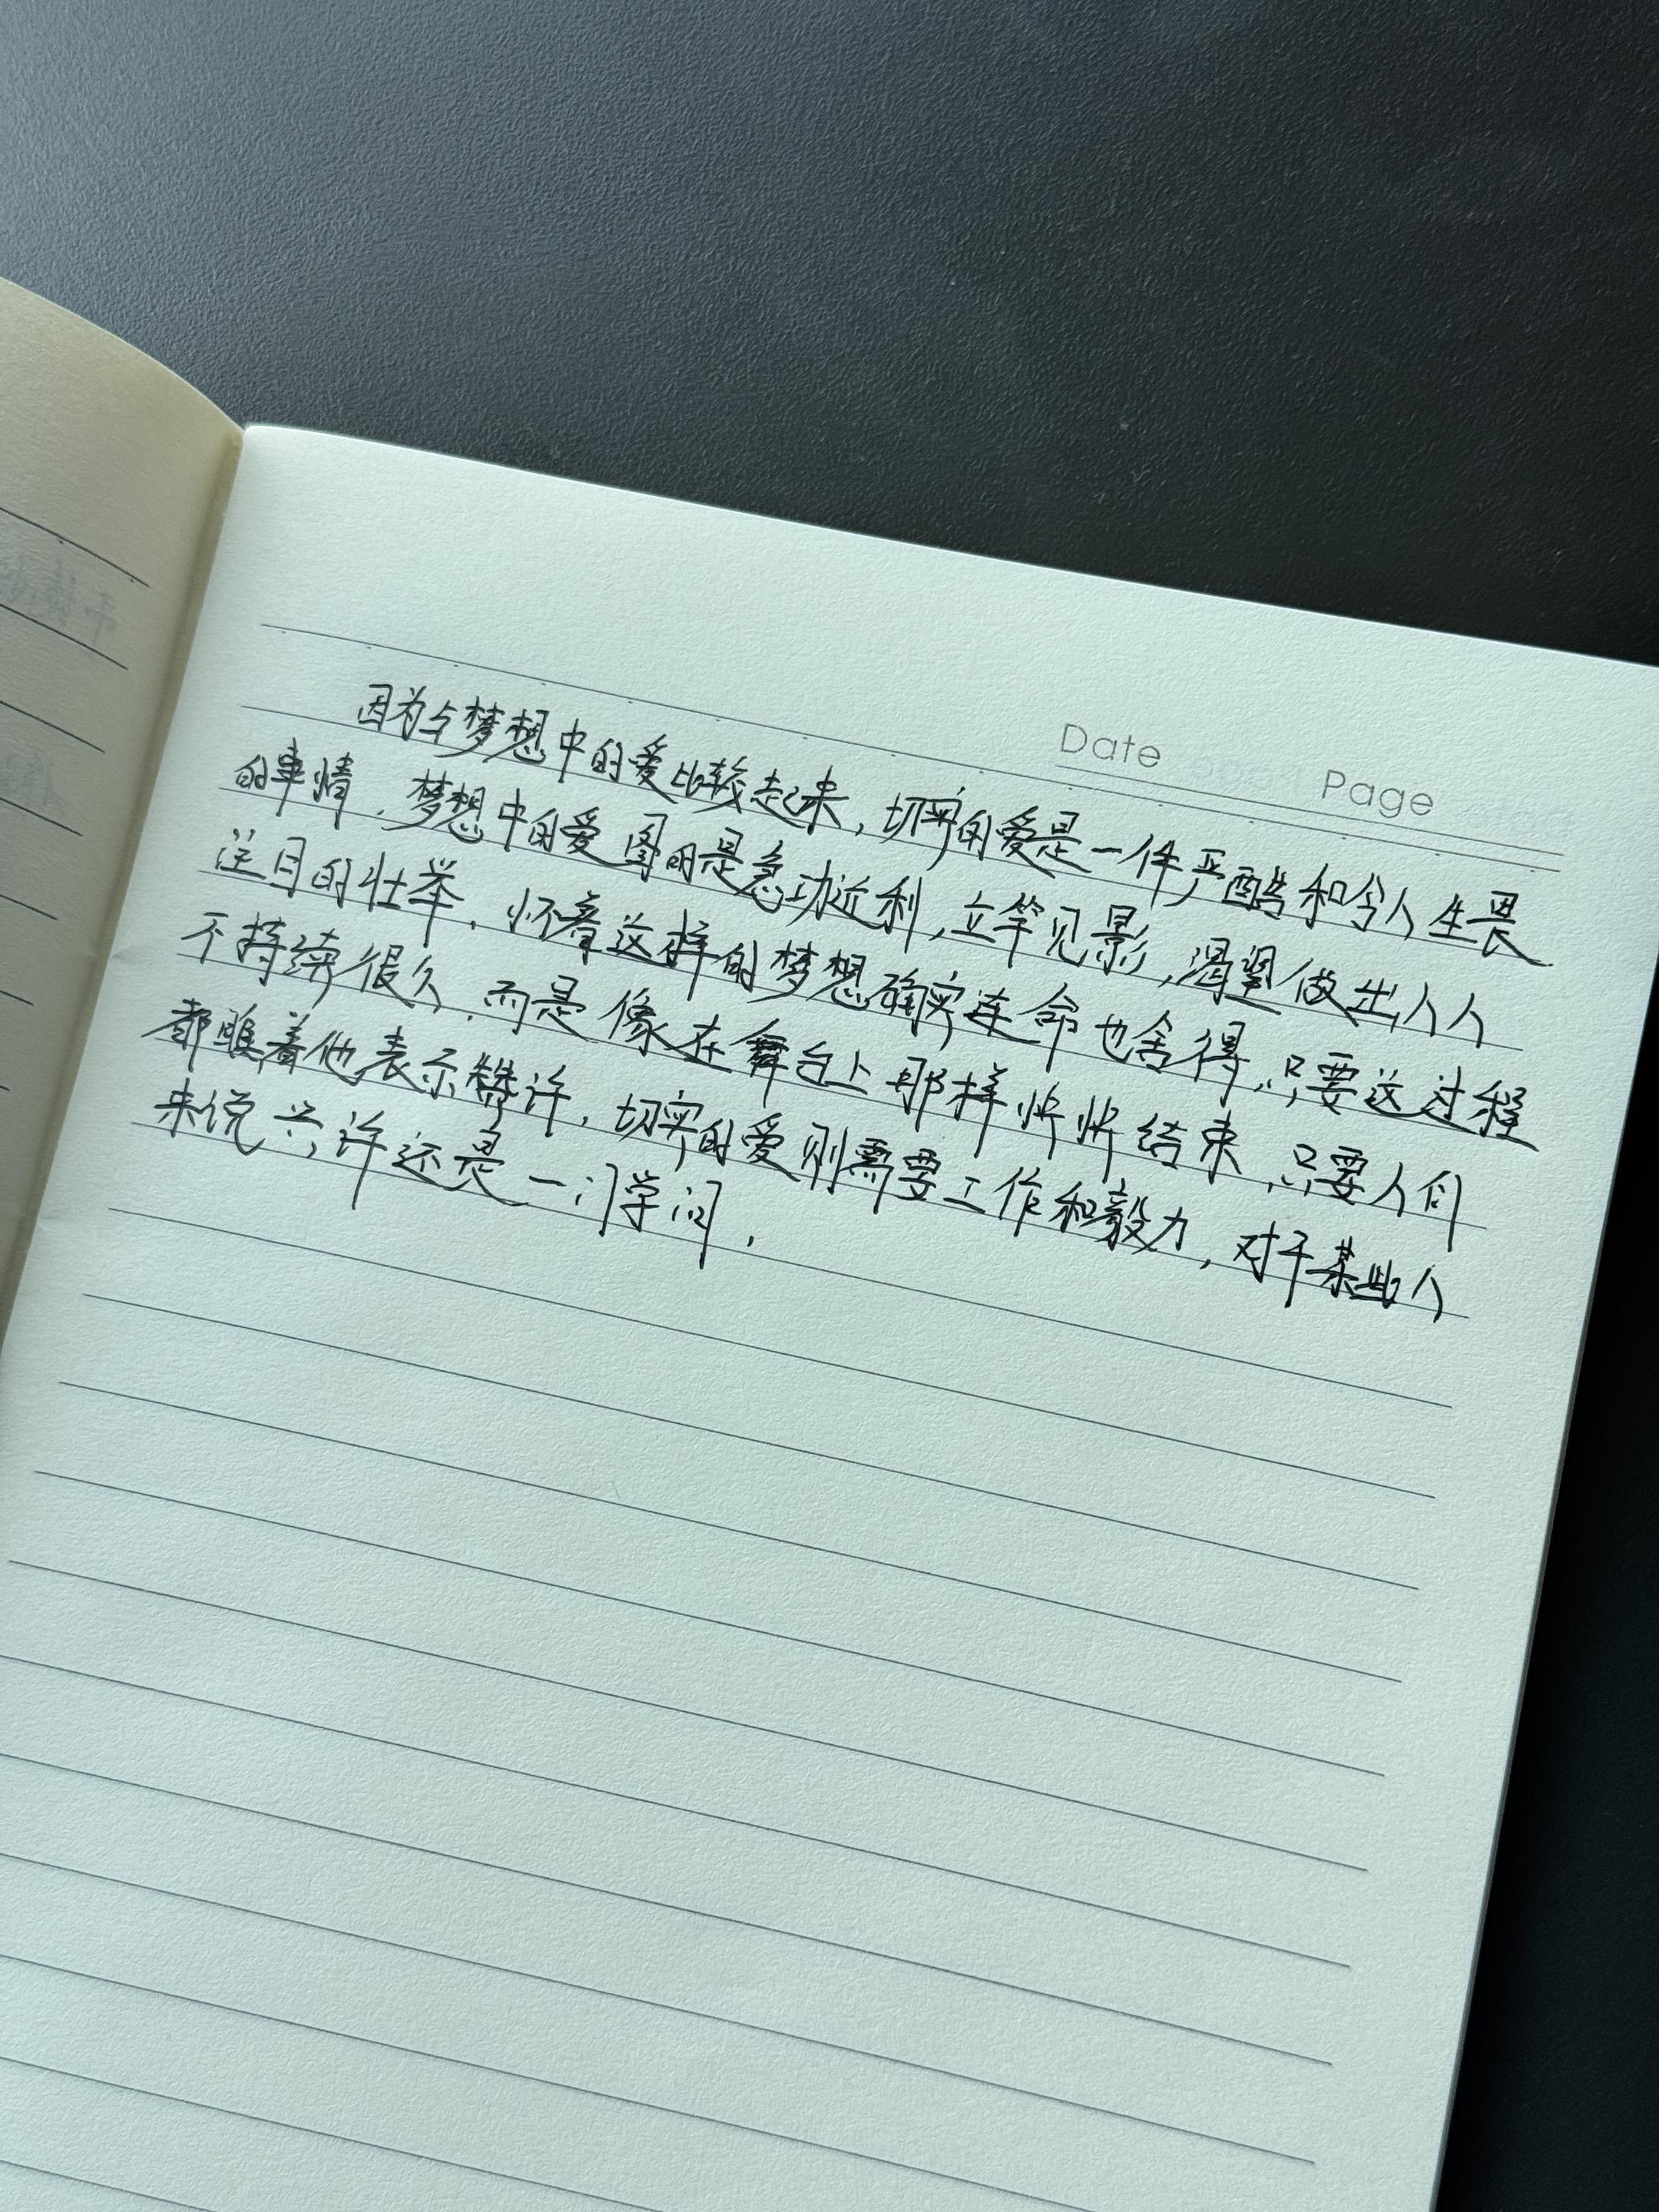 Date Page
因为与梦想中的爱比较起来,切实的爱是一件严酷和令人生畏
的事情.梦想中的爱图的是急功近利,立竿见影,渴望做出人人
注目的壮举.怀着这样的梦想确实连命也舍得.只要这过程
不持续很久.而是像在舞台上那样快快结束.只要人们
都瞧着他表示赞许.切实的爱则需要工作和毅力,对于某些人
来说兴许还是一门学问.